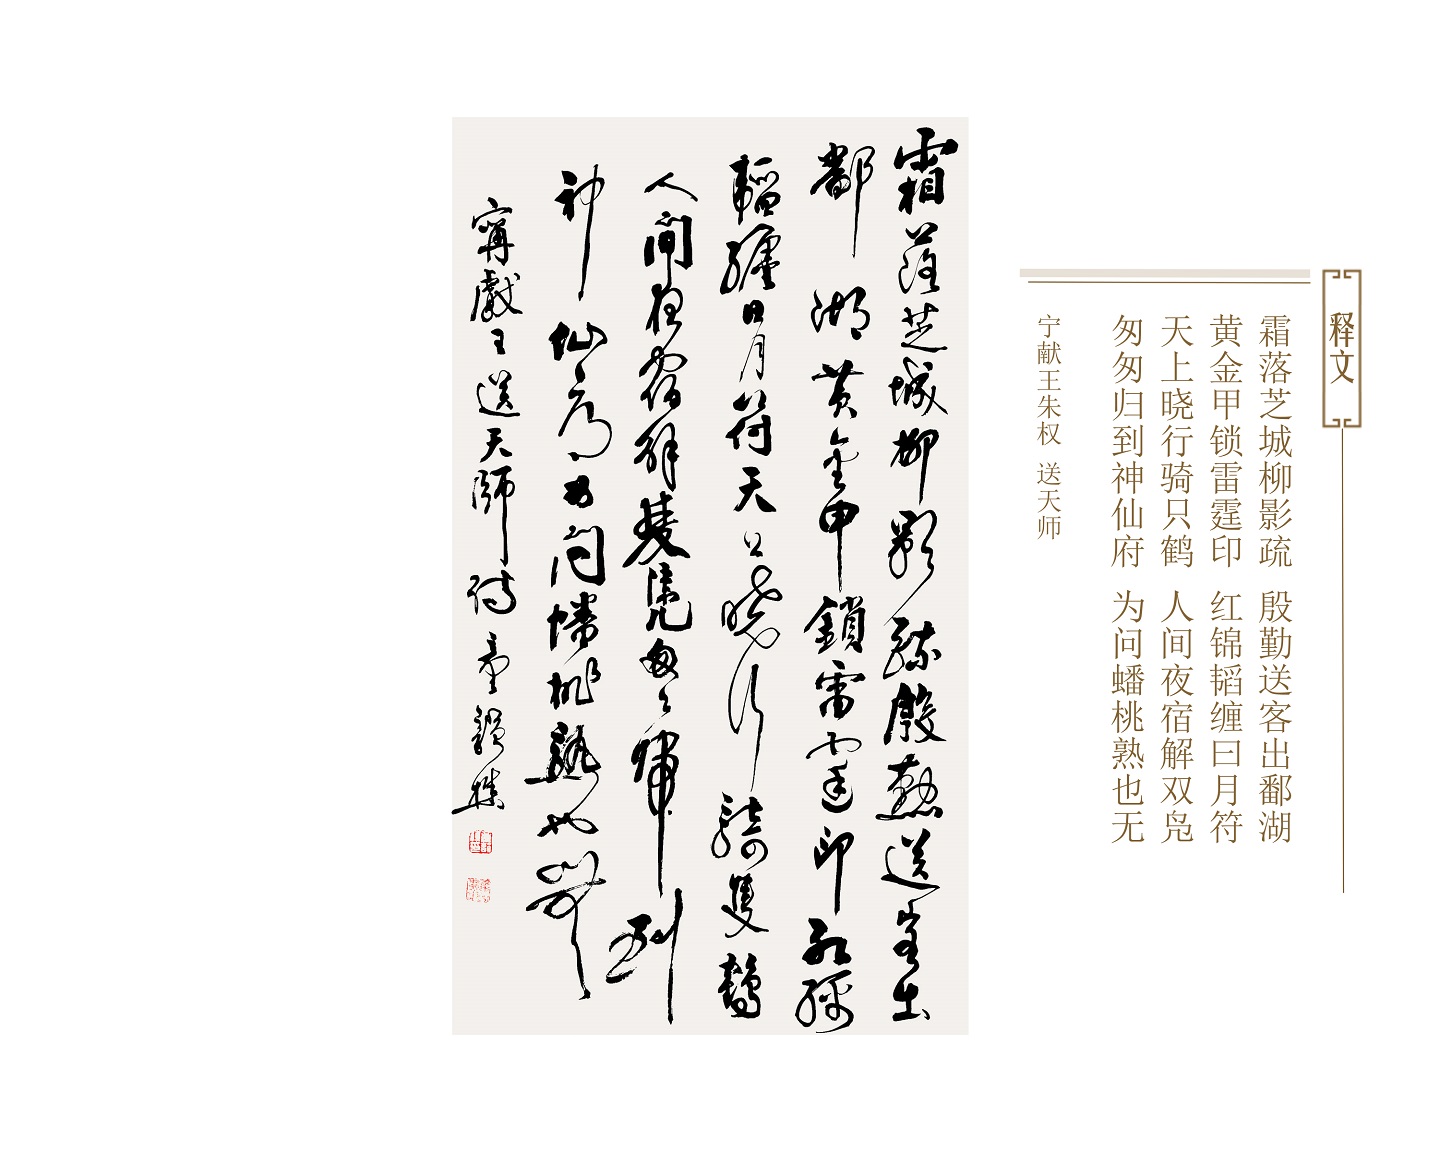 霜落芝城柳影疏殷勤送客出
鄱湖黄金甲鎖雷霆印紅錦
韜纏日月符天上曉行騎隻鶴
人間夜宿解雙鳧匆匆歸到
神仙府為問蟠桃熟也無
寧獻王送天師
释文
霜落芝城柳影疏 殷勤送客出鄱湖
黄金甲锁雷霆印 红锦韬缠曰月符
天上晓行骑只鹤 人间夜宿解双凫
匆匆归到神仙府 为问蟠桃熟也无
宁献王朱权 送天师